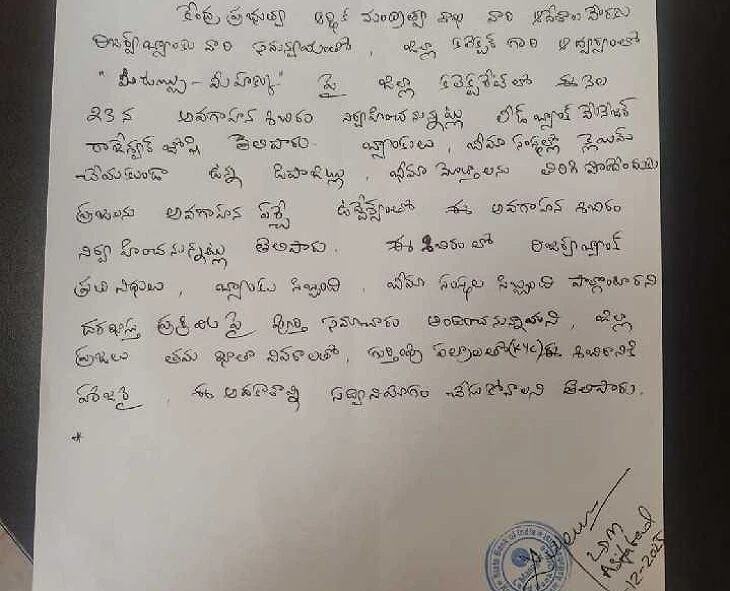 కేంద్ర ప్రభుత్వ ఆర్థిక మంత్రిత్వ శాఖ వారి ఆదేశాల మేరకు
రిజర్వ్ బ్యాంకు వారి సమన్వయంతో, జిల్లా కలెక్టర్ గారి ఆధ్వర్యంలో
"మీ డబ్బు - మీ హక్కు" పై జిల్లా కలెక్టరేట్ లో ఈ నెల
23న అవగాహన శిబిరం నిర్వహించనున్నట్లు లీడ్ బ్యాంక్ మేనేజర్
రాజేశ్వర్ జోషి తెలిపారు. బ్యాంకులు, బీమా సంస్థల్లో క్లెయిమ్
చేయకుండా ఉన్న డిపాజిట్లు, బీమా మొత్తాలను తిరిగి పొందేందుకు
ప్రజలను అవగాహన పర్చే ఉద్దేశ్యంతో ఈ అవగాహన శిబిరం
నిర్వహించనున్నట్లు తెలిపారు. ఈ శిబిరంలో రిజర్వ్ బ్యాంక్
ప్రతినిధులు, బ్యాంకు సిబ్బంది, బీమా సంస్థల సిబ్బంది పాల్గొంటారని
దరఖాస్తు ప్రక్రియ పై పూర్తి సమాచారం అందించనున్నారని, జిల్లా
ప్రజలు తమ ఖాతా వివరాలతో, గుర్తింపు పత్రాలతో (KYC) ఈ శిబిరానికి
హాజరై, ఈ అవకాశాన్ని సద్వినియోగం చేసుకోవాలని తెలిపారు.
*
LDM
Asifabad
-12-2025
State Bank of India